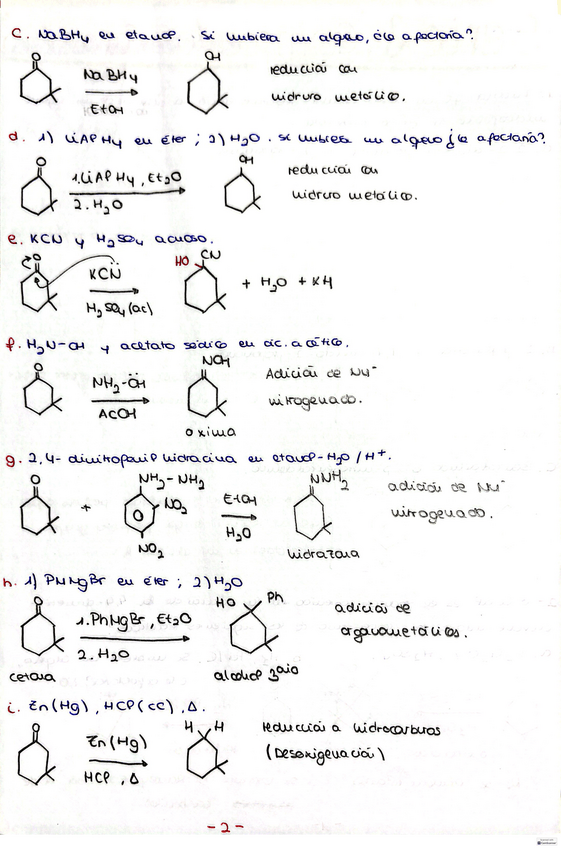 C. NaBH4 en etanol. Si hubiera un alqeno, ¿le afectaría?
O
NaBH4
EtOH
OH
reducción con
hidruro metálico.
d. 1) LiAlH4 en éter ; 2) H2O. Si hubiera un alqeno ¿le afectaría?
O
1.LiAlH4, Et2O
2. H2O
OH
reducción con
hidruro metálico.
e. KCN y H2SO4 acuoso.
O
KCN̈
H2SO4(ac)
HO CN
+ H2O + KH
f. H2N-OH y acetato sódico en ác. acético.
O
NH2-ÖH
ACOH
NOH
oxima
Adición de Nu-
nitrogenado.
g. 2,4- dinitrofenil hidracina en etanol-H2O/H+.
O
+
NH2-NH2
NO2
NO2
EtOH
H2O
NNH2
hidrazona
adición de Nu-
nitrogenado.
h. 1) PhMgBr en éter ; 2) H2O
O
1.PhMgBr, Et2O
2. H2O
HO Ph
cetona
alcohol 3ario
adición de
organometálicos.
i. Zn(Hg), HCl(cc), Δ.
O
Zn(Hg)
HCl, Δ
H H
reducción a hidrocarburos
(Desoxigenación)
-2-